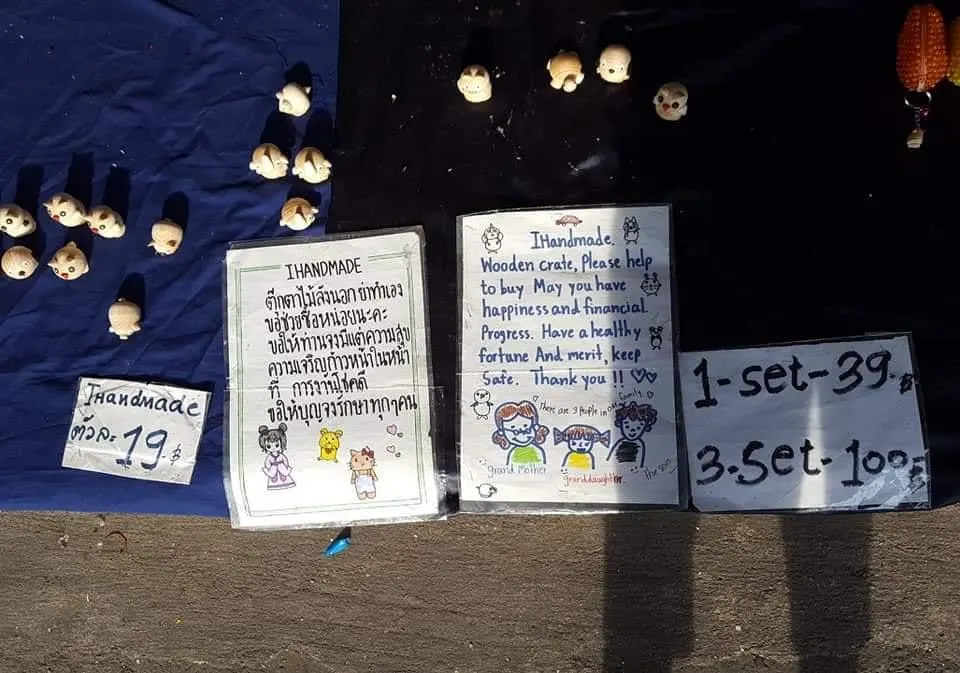 IHandmade
ตัวละ 19.฿
IHANDMADE
ตุ๊กตาไม้ลังนอก ย่าทำเอง
ขอช่วยซื้อหน่อยนะคะ
ขอให้ท่านจงมีแต่ความสุข
ความเจริญก้าวหน้าในหน้า
ที่ การงานโชคดี
ขอให้บุญจงรักษาทุกๆคน
IHandmade.
Wooden crate, Please help
to buy May you have
happiness and financial
Progress. Have a healthy
fortune And merit, keep
Safe. Thank you !!
There are 3 people in our family.
grand Mother
granddaughter.
The son
1-set-39.฿
3-Set-100฿